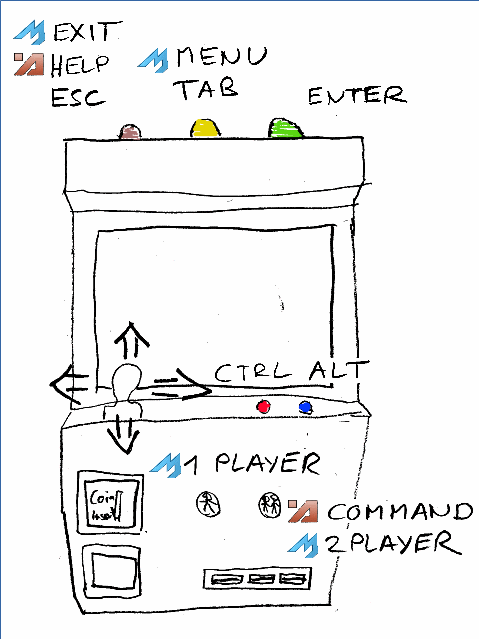 EXIT
HELP
ESC
MENU
TAB
ENTER
CTRL ALT
1 PLAYER
Coin
COMMAND
2 PLAYER